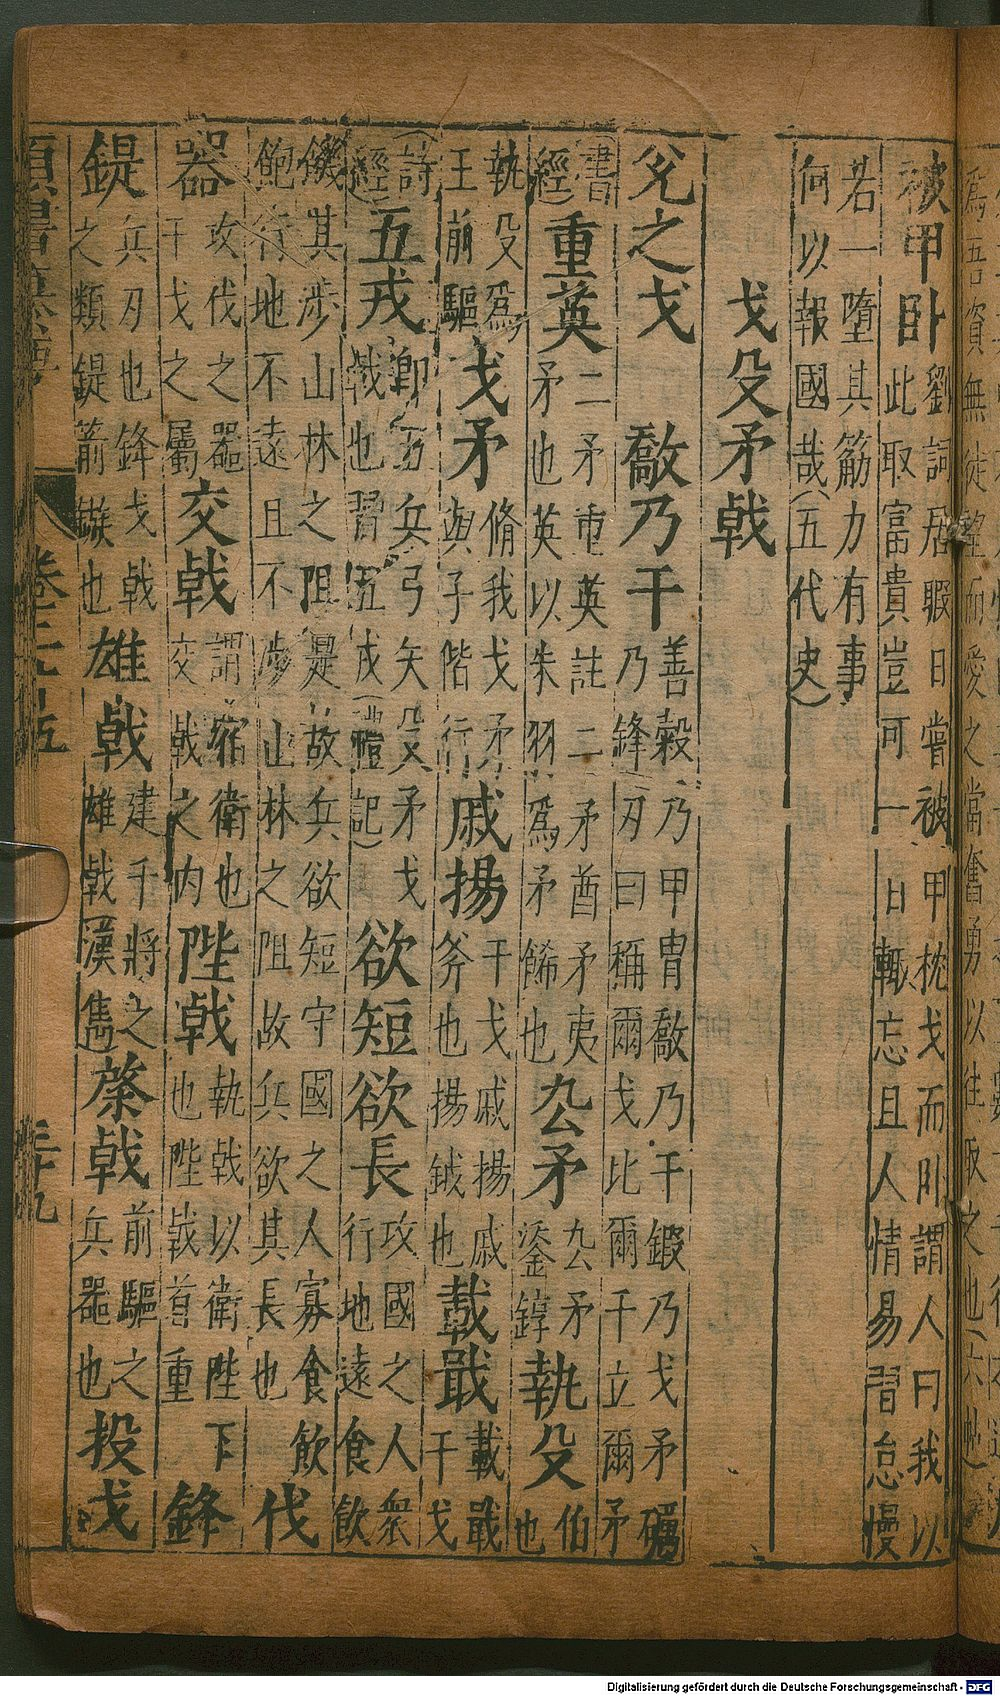 被甲卧 劉詞居暇日嘗被甲枕戈而卧謂人曰我以
此取富貴豈可一日輙忘且人情易習怠慢
若一墮其筋力有事
何以報國哉(五代史)
戈殳矛戟
兊之戈 敽乃干 善穀乃甲胄敽乃干鍜乃戈矛礪
乃鋒刃曰稱爾戈比爾干立爾矛
(書經) 重英 二矛重英註二矛酋矛夷
矛也英以朱羽爲矛餙也 厹矛 厹矛
鋈錞 執殳 伯也
執殳爲
王前驅 戈矛 脩我戈矛
與子偕行 戚揚 干戈戚揚戚
斧也揚鉞也 載戢 載戢
干戈
(詩經) 五戎 卿五兵弓矢殳矛戈
戟也習五戎(禮記) 欲短欲長 攻國之人衆
行地遠食飲
饑其渉山林之阻是故兵欲短守國之人寡食飲
飽行地不遠且不渉山林之阻故兵欲其長也 伐
器 攻伐之器
干戈之屬 交戟 謂宿衛也
交戟之内 陛戟 執戟以衛陛下
也陛戟首重 鋒
鍉 兵刃也鋒戈戟
之類鍉箭鏃也 雄戟 建干將之
雄戟漢雋 棨戟 前驅之
兵器也 投戈
卷三十五
三十九
Digitalisierung gefördert durch die Deutsche Forschungsgemeinschaft - DFG